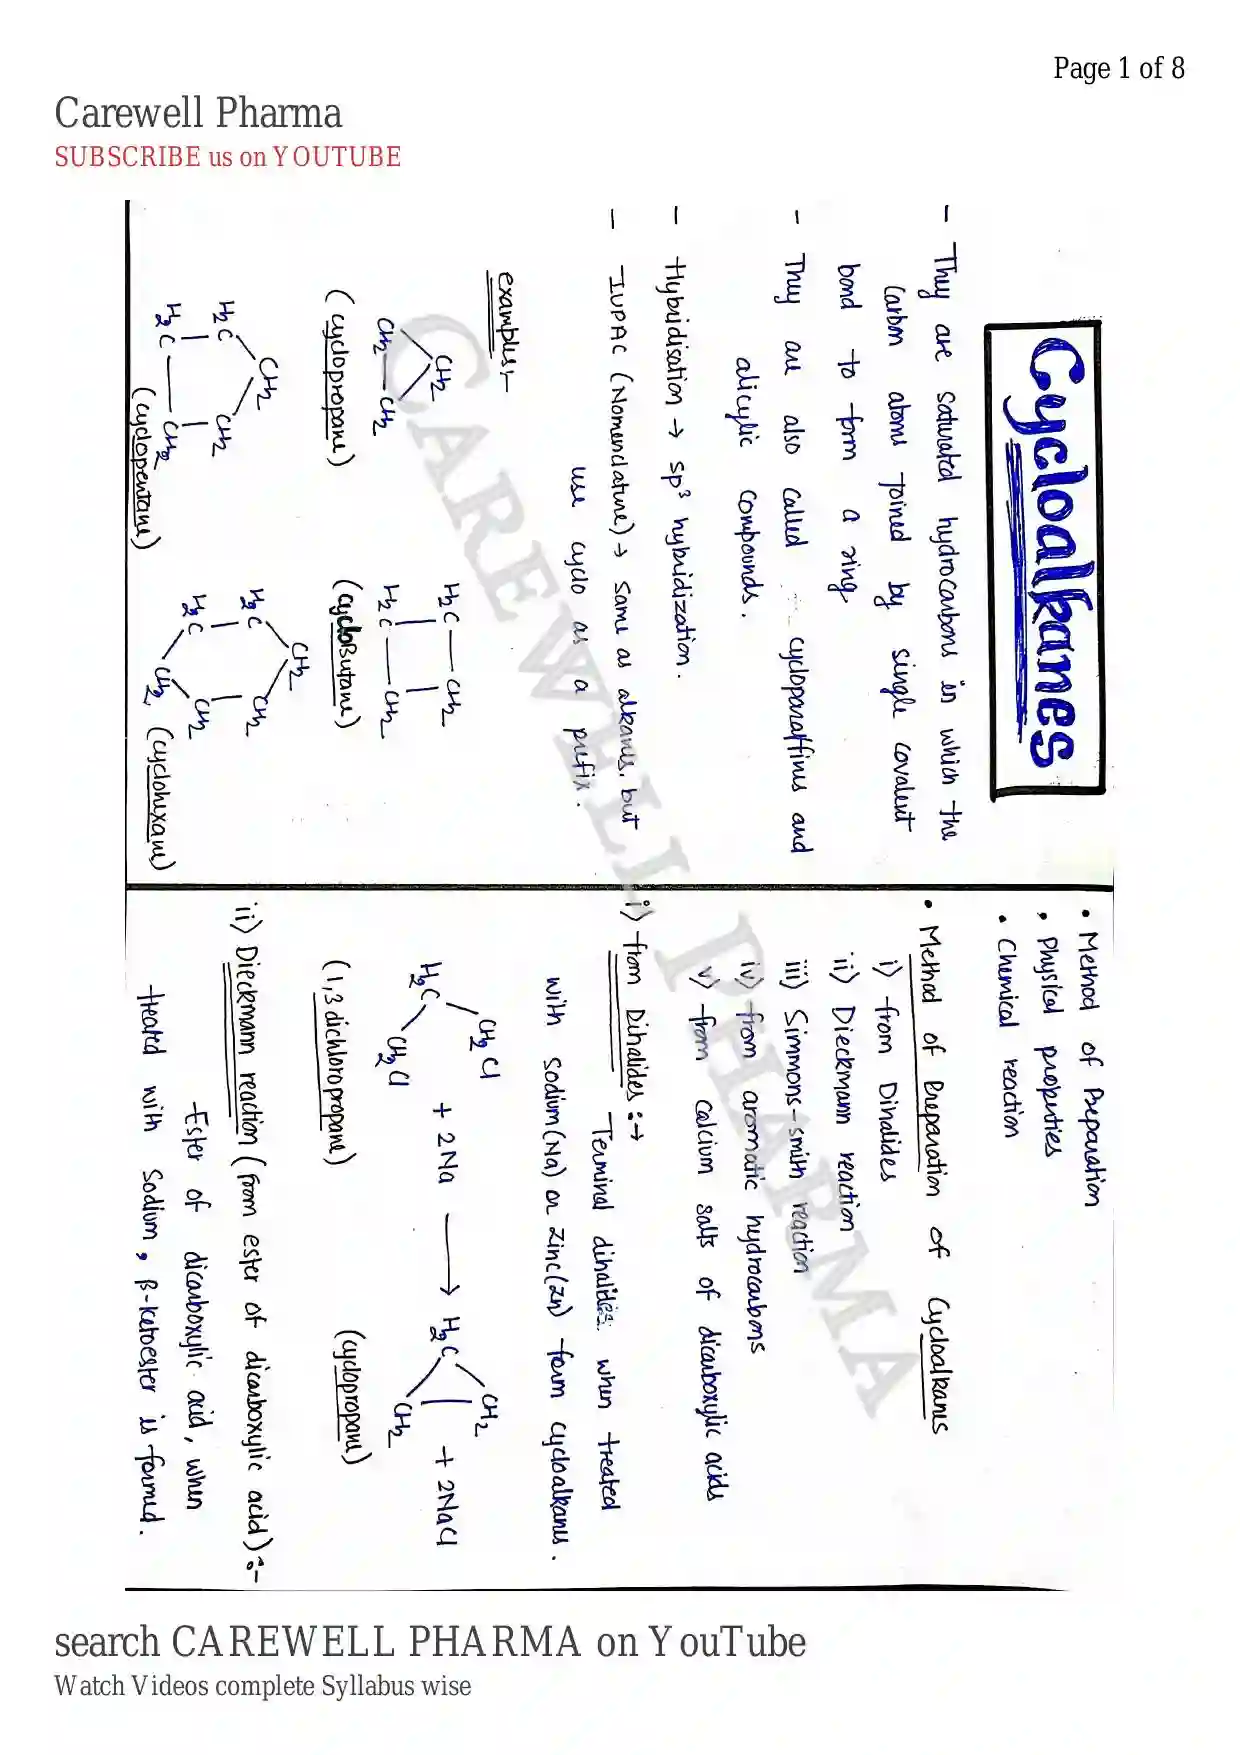 Page 1 of 8
Carewell Pharma
SUBSCRIBE us on YOUTUBE
Cycloalkanes
- They are saturated hydrocarbons in which the
carbon atoms joined by single covalent
bond to form a ring.
- They are also called cycloparaffines and
alicylic compounds.
- Hybridisation → sp³ hybridization.
- IUPAC (Nomenclature) → same as alkanes. but
use cyclo as a prefix.
examples:-
CH₂
CH₂ — CH₂
(cyclopropane)
H₂C — CH₂
H₂C — CH₂
(cycloButane)
CH₂
H₂C CH₂
H₂C — CH₂
(cyclopentane)
CH₂
H₂C CH₂
H₂C CH₂
CH₂
(cyclohexane)
• Method of Preparation
• Physical properties
• Chemical reaction
• Method of Preparation of Cycloalkanes
i) from Dihalides
ii) Dieckmann reaction
iii) Simmons-smith reaction
iv) from aromatic hydrocarbons
v) from calcium salts of dicarboxylic acids
i) from Dihalides :→
Terminal dihalides. when treated
with sodium(Na) or zinc(Zn) form cycloalkanes.
H₂C CH₂Cl CH₂Cl + 2Na → H₂C CH₂ CH₂ + 2NaCl
(1,3 dichloropropane) (cyclopropane)
ii) Dieckmann reaction (from ester of dicarboxylic acid) :-
-Ester of dicarboxylic acid, when
treated with sodium, β-ketoester is formed.
CAREWELL PHARMA
search CAREWELL PHARMA on YouTube
Watch Videos complete Syllabus wise